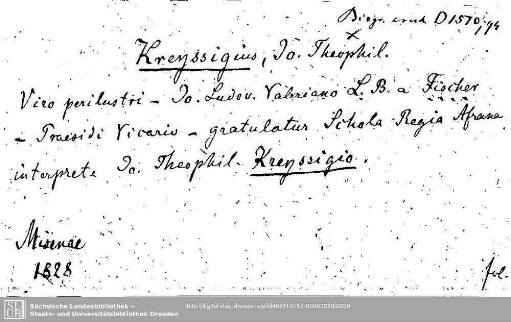 Biogr. erud. D 1570,94
Kreyssigius, Jo. Theophil.
Viro perillustri – Jo. Ludov. Valeriano L. B. a Fischer
– Praesidi Vicario – gratulatur Schola Regia Afrana
interprete Jo. Theophil. Kreyssigio.
Misenae
1828
fol.
Sächsische Landesbibliothek –
Staats- und Universitätsbibliothek Dresden